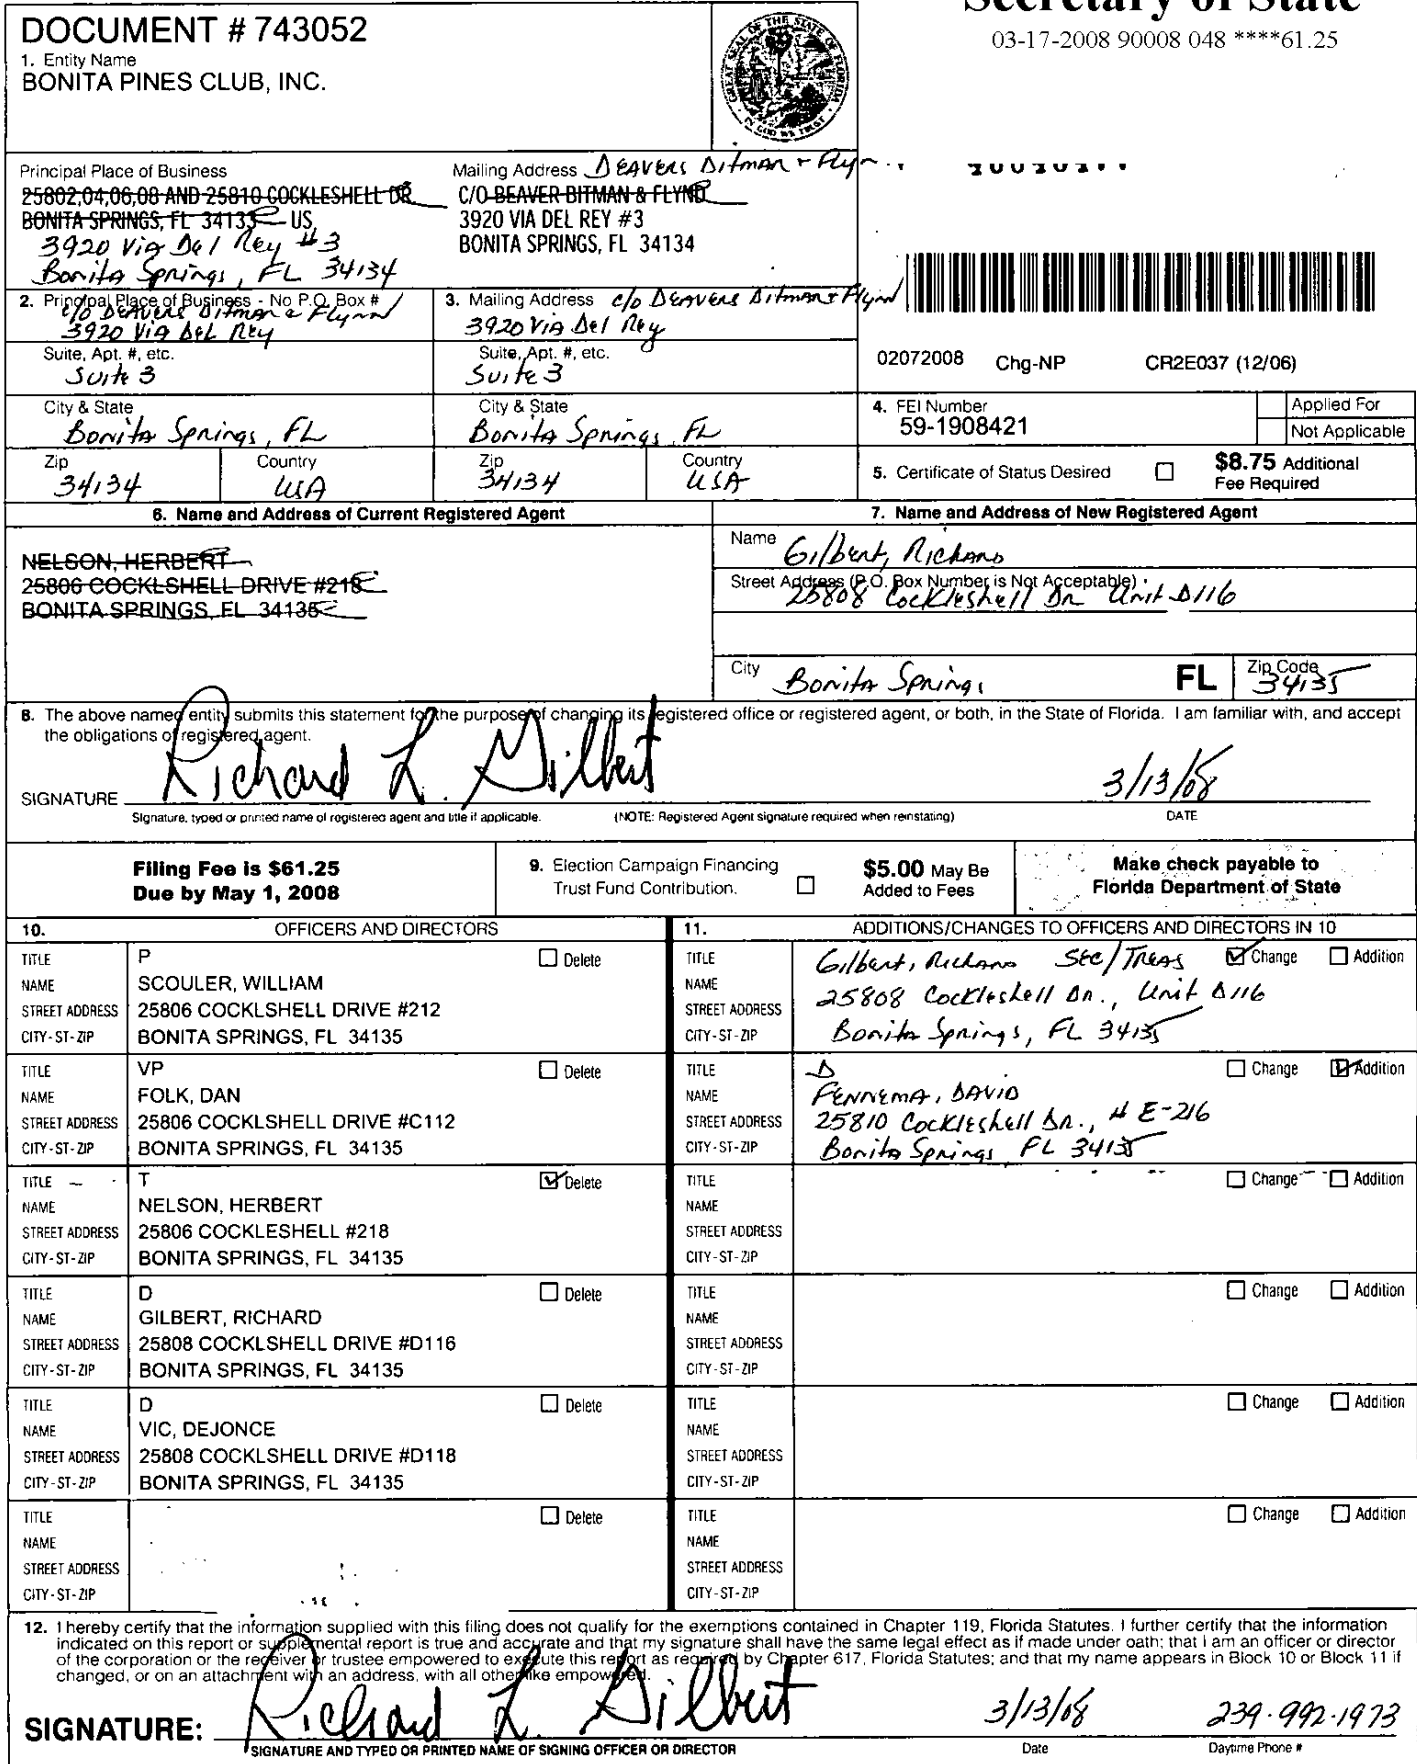 Secretary of State
DOCUMENT # 743052
03-17-2008 90008 048 ****61.25
1. Entity Name
BONITA PINES CLUB, INC.
GREAT SEAL OF THE STATE OF FLORIDA
IN GOD WE TRUST
Principal Place of Business
25802,04,06,08 AND 25810 COCKLESHELL DR
BONITA SPRINGS, FL 34135 US
3920 Via Del Rey #3
Bonita Springs, FL 34134
Mailing Address DEAVERS Ditman + Flyn
C/O BEAVER BITMAN & FLYND
3920 VIA DEL REY #3
BONITA SPRINGS, FL 34134
2. Principal Place of Business - No P.O. Box #
c/o DEAVERS Ditman & Flynn
3920 Via Del Rey
3. Mailing Address c/o DEAVERS Ditman + Flynn
3920 Via Del Rey
Suite, Apt. #, etc.
Suite 3
Suite, Apt. #, etc.
Suite 3
02072008 Chg-NP CR2E037 (12/06)
City & State
Bonita Springs, FL
City & State
Bonita Springs FL
4. FEI Number
59-1908421
Applied For
Not Applicable
Zip
34134
Country
USA
Zip
34134
Country
USA
5. Certificate of Status Desired
$8.75 Additional
Fee Required
6. Name and Address of Current Registered Agent
7. Name and Address of New Registered Agent
NELSON, HERBERT
25806 COCKLSHELL DRIVE #218
BONITA SPRINGS, FL 34135
Name Gilbert, Richard
Street Address (P.O. Box Number is Not Acceptable)
25808 Cockleshell Dr Unit D116
City Bonita Springs FL Zip Code 34135
8. The above named entity submits this statement for the purpose of changing its registered office or registered agent, or both, in the State of Florida. I am familiar with, and accept
the obligations of registered agent.
SIGNATURE Richard L. Gilbert 3/13/08
Signature, typed or printed name of registered agent and title if applicable. (NOTE: Registered Agent signature required when reinstating) DATE
Filing Fee is $61.25
Due by May 1, 2008
9. Election Campaign Financing
Trust Fund Contribution.
$5.00 May Be
Added to Fees
Make check payable to
Florida Department of State
10. OFFICERS AND DIRECTORS
11. ADDITIONS/CHANGES TO OFFICERS AND DIRECTORS IN 10
TITLE P Delete
NAME SCOULER, WILLIAM
STREET ADDRESS 25806 COCKLSHELL DRIVE #212
CITY-ST-ZIP BONITA SPRINGS, FL 34135
TITLE Gilbert, Richard Sec/Treas Change Addition
NAME
STREET ADDRESS 25808 Cockleshell Dr., Unit D116
CITY-ST-ZIP Bonita Springs, FL 34135
TITLE VP Delete
NAME FOLK, DAN
STREET ADDRESS 25806 COCKLSHELL DRIVE #C112
CITY-ST-ZIP BONITA SPRINGS, FL 34135
TITLE D Change Addition
NAME FENNEMA, DAVID
STREET ADDRESS 25810 Cockleshell Dr., # E-216
CITY-ST-ZIP Bonita Springs FL 34135
TITLE T Delete
NAME NELSON, HERBERT
STREET ADDRESS 25806 COCKLESHELL #218
CITY-ST-ZIP BONITA SPRINGS, FL 34135
TITLE Change Addition
NAME
STREET ADDRESS
CITY-ST-ZIP
TITLE D Delete
NAME GILBERT, RICHARD
STREET ADDRESS 25808 COCKLSHELL DRIVE #D116
CITY-ST-ZIP BONITA SPRINGS, FL 34135
TITLE Change Addition
NAME
STREET ADDRESS
CITY-ST-ZIP
TITLE D Delete
NAME VIC, DEJONCE
STREET ADDRESS 25808 COCKLSHELL DRIVE #D118
CITY-ST-ZIP BONITA SPRINGS, FL 34135
TITLE Change Addition
NAME
STREET ADDRESS
CITY-ST-ZIP
TITLE Delete
NAME
STREET ADDRESS
CITY-ST-ZIP
TITLE Change Addition
NAME
STREET ADDRESS
CITY-ST-ZIP
12. I hereby certify that the information supplied with this filing does not qualify for the exemptions contained in Chapter 119, Florida Statutes. I further certify that the information
indicated on this report or supplemental report is true and accurate and that my signature shall have the same legal effect as if made under oath; that I am an officer or director
of the corporation or the receiver or trustee empowered to execute this report as required by Chapter 617, Florida Statutes; and that my name appears in Block 10 or Block 11 if
changed, or on an attachment with an address, with all other like empowered.
SIGNATURE: Richard L. Gilbert 3/13/08 239-992-1973
SIGNATURE AND TYPED OR PRINTED NAME OF SIGNING OFFICER OR DIRECTOR Date Daytime Phone #